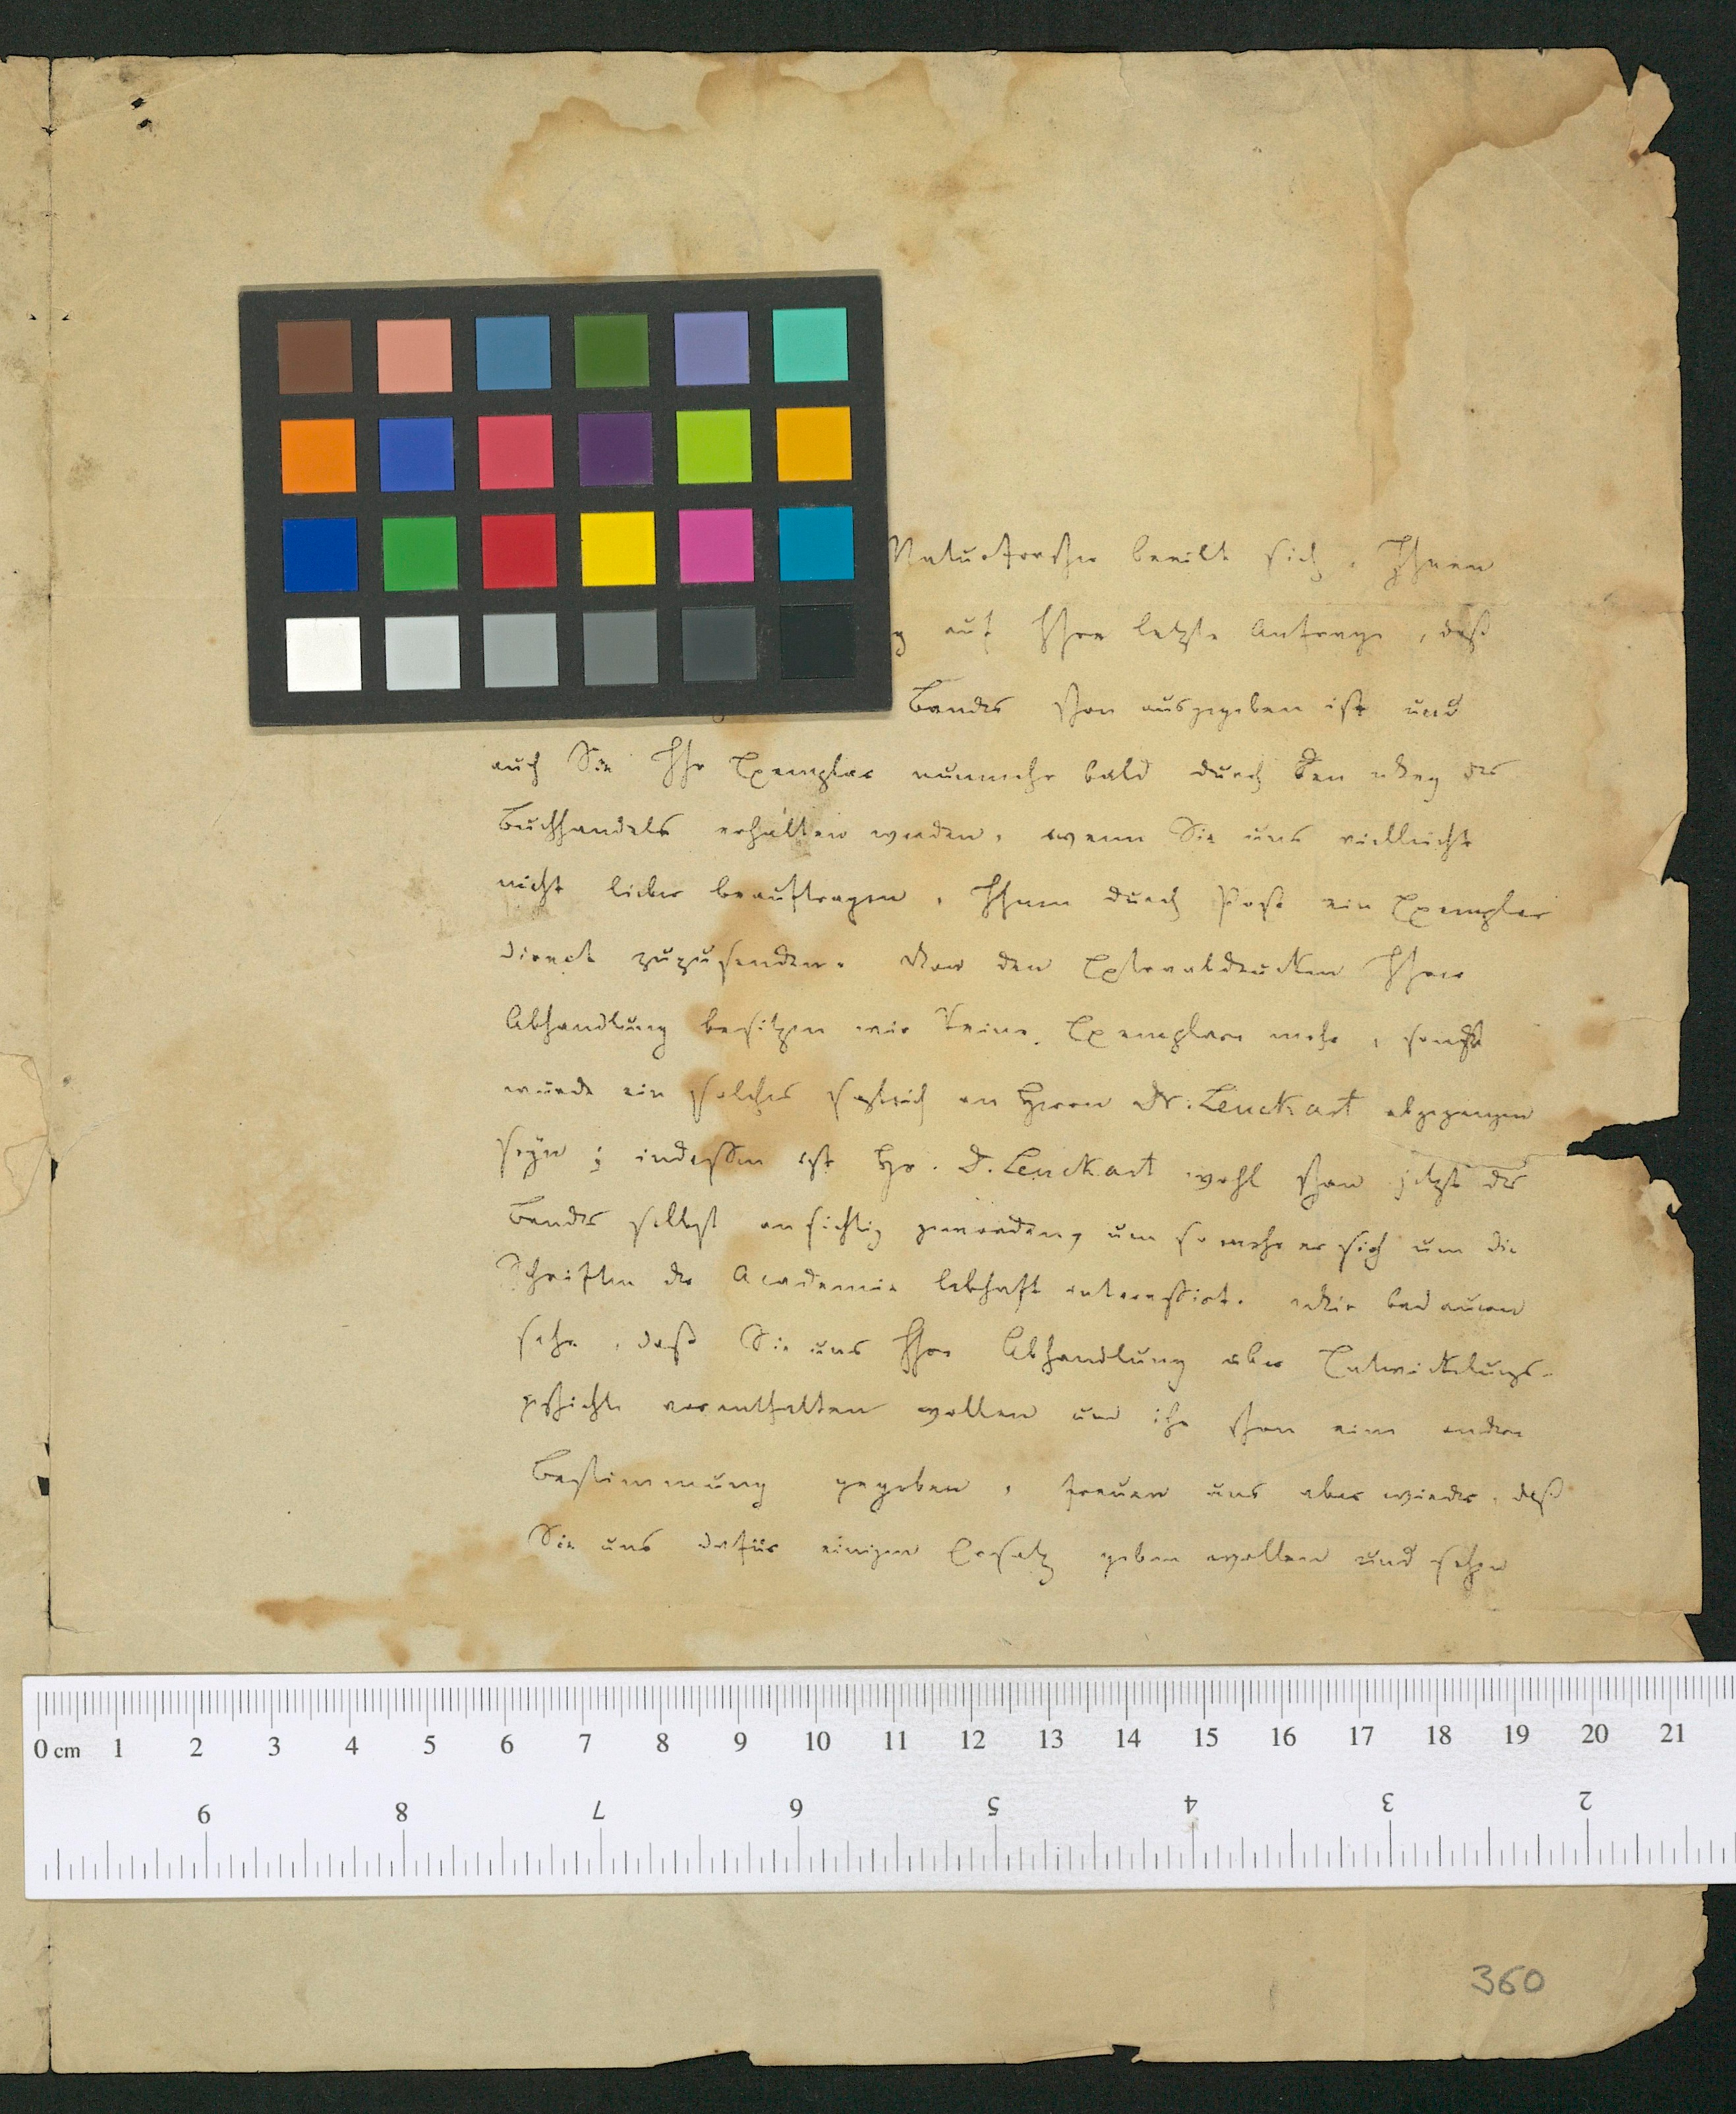 Naturforscher beeilt sich, Ihnen
auf Ihre letzte Anfrage, daß
Bandes schon ausgegeben ist und
auch Sie Ihr Exemplar nunmehr bald durch den Weg des
Buchhandels erhalten werden, wenn Sie uns vielleicht
nicht lieber beauftragen, Ihnen durch Post ein Exemplar
direct zuzusenden. Von den Extraabdrücken Ihrer
Abhandlung besitzen wir keine Exemplare mehr, sonst
würde ein solches sogleich an Herrn Dr. Leuckart abgegangen
seyn; indessen ist Hr. D. Leuckart wohl schon jetzt des
Bandes selbst ansichtig geworden, um so mehr er sich um die
Schriften der Academie lebhaft interessirt. Wir bedauern
sehr, daß Sie uns Ihre Abhandlung über Entwickelungs-
geschichte vorenthalten wollen und ihr schon eine andere
Bestimmung gegeben, freuen uns aber wieder, daß
Sie uns dafür einigen Ersatz geben wollen und sehen
0 cm 1 2 3 4 5 6 7 8 9 10 11 12 13 14 15 16 17 18 19 20 21
9 8 7 6 5 4 3 2
360